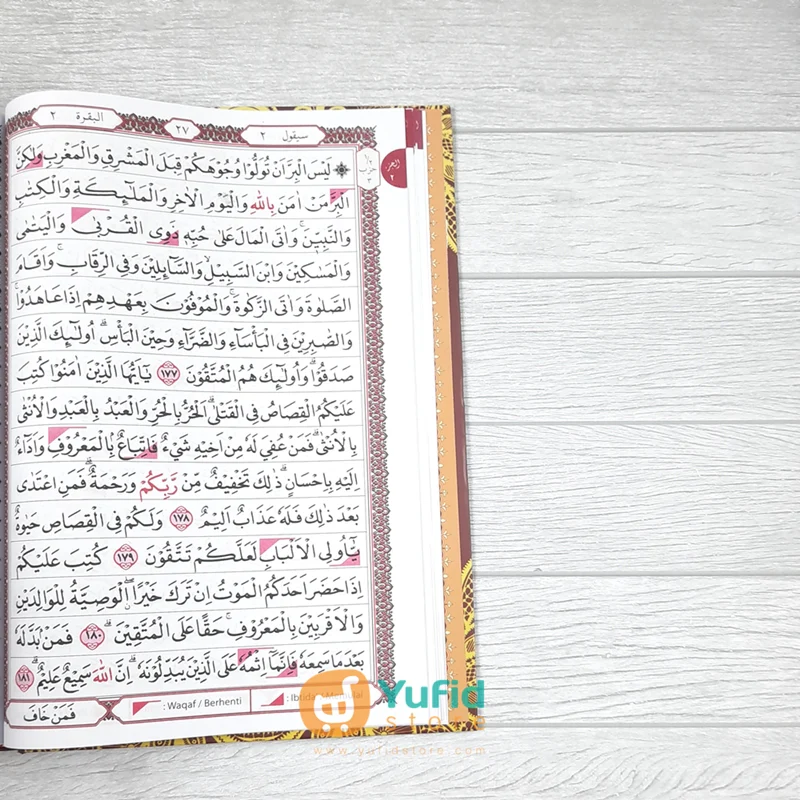 البقرة ٢
٢٧
سيقول ٢
لَيْسَ الْبِرَّ اَنْ تُوَلُّوْا وُجُوْهَكُمْ قِبَلَ الْمَشْرِقِ وَالْمَغْرِبِ وَلٰكِنَّ
الْبِرَّ مَنْ اٰمَنَ بِاللّٰهِ وَالْيَوْمِ الْاٰخِرِ وَالْمَلٰۤىِٕكَةِ وَالْكِتٰبِ
وَالنَّبِيّٖنَ ۚ وَاٰتَى الْمَالَ عَلٰى حُبِّهٖ ذَوِى الْقُرْبٰى وَالْيَتٰمٰى
وَالْمَسٰكِيْنَ وَابْنَ السَّبِيْلِۙ وَالسَّاۤىِٕلِيْنَ وَفِى الرِّقَابِ ۚ وَاَقَامَ
الصَّلٰوةَ وَاٰتَى الزَّكٰوةَ ۚ وَالْمُوْفُوْنَ بِعَهْدِهِمْ اِذَا عَاهَدُوْا ۚ
وَالصّٰبِرِيْنَ فِى الْبَأْسَاۤءِ وَالضَّرَّاۤءِ وَحِيْنَ الْبَأْسِۗ اُولٰۤىِٕكَ الَّذِيْنَ
صَدَقُوْاۗ وَاُولٰۤىِٕكَ هُمُ الْمُتَّقُوْنَ ١٧٧ يٰٓاَيُّهَا الَّذِيْنَ اٰمَنُوْا كُتِبَ
عَلَيْكُمُ الْقِصَاصُ فِى الْقَتْلٰىۗ اَلْحُرُّ بِالْحُرِّ وَالْعَبْدُ بِالْعَبْدِ وَالْاُنْثٰى
بِالْاُنْثٰىۗ فَمَنْ عُفِيَ لَهٗ مِنْ اَخِيْهِ شَيْءٌ فَاتِّبَاعٌ ۢبِالْمَعْرُوْفِ وَاَدَاۤءٌ
اِلَيْهِ بِاِحْسَانٍۗ ذٰلِكَ تَخْفِيْفٌ مِّنْ رَّبِّكُمْ وَرَحْمَةٌۗ فَمَنِ اعْتَدٰى
بَعْدَ ذٰلِكَ فَلَهٗ عَذَابٌ اَلِيْمٌ ١٧٨ وَلَكُمْ فِى الْقِصَاصِ حَيٰوةٌ
يّٰٓاُولِى الْاَلْبَابِ لَعَلَّكُمْ تَتَّقُوْنَ ١٧٩ كُتِبَ عَلَيْكُمْ
اِذَا حَضَرَ اَحَدَكُمُ الْمَوْتُ اِنْ تَرَكَ خَيْرًاۖ ۨالْوَصِيَّةُ لِلْوَالِدَيْنِ
وَالْاَقْرَبِيْنَ بِالْمَعْرُوْفِۚ حَقًّا عَلَى الْمُتَّقِيْنَۗ ١٨٠ فَمَنْۢ بَدَّلَهٗ
بَعْدَمَا سَمِعَهٗ فَاِنَّمَآ اِثْمُهٗ عَلَى الَّذِيْنَ يُبَدِّلُوْنَهٗۗ اِنَّ اللّٰهَ سَمِيْعٌ عَلِيْمٌۗ ١٨١
فَمَنْ خَافَ
: Waqaf / Berhenti
: Ibtida
الجزء
٢
Yufid
store
www.yufidstore.com